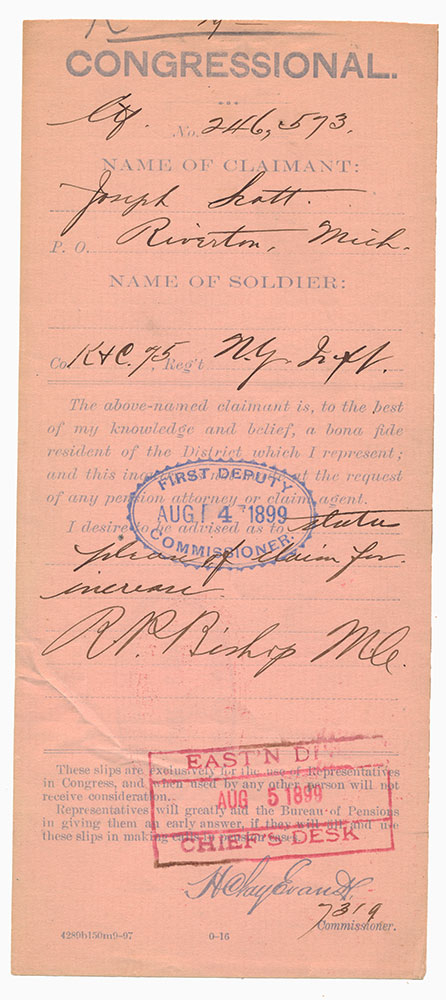 CONGRESSIONAL.
Ctf. No. 246,573.
NAME OF CLAIMANT:
Joseph Scott.
P. O. Riverton, Mich.
NAME OF SOLDIER:
Co. K & C. 75, Reg't N.Y. Inft.
The above-named claimant is, to the best
of my knowledge and belief, a bona fide
resident of the District which I represent;
and this is not at the request
of any pension attorney or claim agent.
I desire to be advised as to status
please of claim for
increase
R.P. Bishop M.C.
FIRST DEPUTY
AUG 4 1899
COMMISSIONER.
EAST'N DIV
AUG 5 1899
CHIEF'S DESK
These slips are exclusively for the use of Representatives
in Congress, and when used by any other person will not
receive consideration.
Representatives will greatly aid the Bureau of Pensions
in giving them an early answer, if they will fill and use
these slips in making calls in pension cases.
H Clay Evans
7319
Commissioner.
4289b150m9-97 0-16